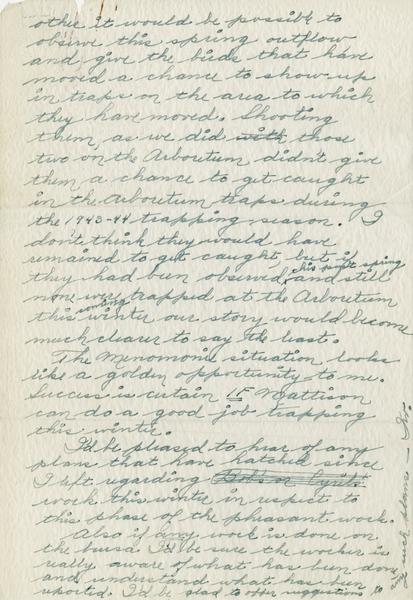 other it would be possible to
observe this spring outflow
and give the birds that have
moved a chance to show up
in traps on the area to which
they have moved. Shooting
them, as we did with those
two on the Arboretum didn't give
them a chance to get caught
in the Arboretum traps during
the 1943-44 trapping season. I
don't think they would have
remained to get caught but if
they had been observed, this spring and still
none were trapped at the Arboretum
this coming winter our story would become
much clearer to say the least.
The Menomonie situation looks
like a golden opportunity to me.
Success is certain IF Mattison
can do a good job trapping
this winter.
I'd be pleased to hear of any
plans that have hatched since
I left regarding
work this winter in respect to
this phase of the pheasant work.
Also if any work is done on
the bursa I'd be sure the worker is
really aware of what has been done
and understand what has been
reported. I'd be glad to offer suggestions to
such plans